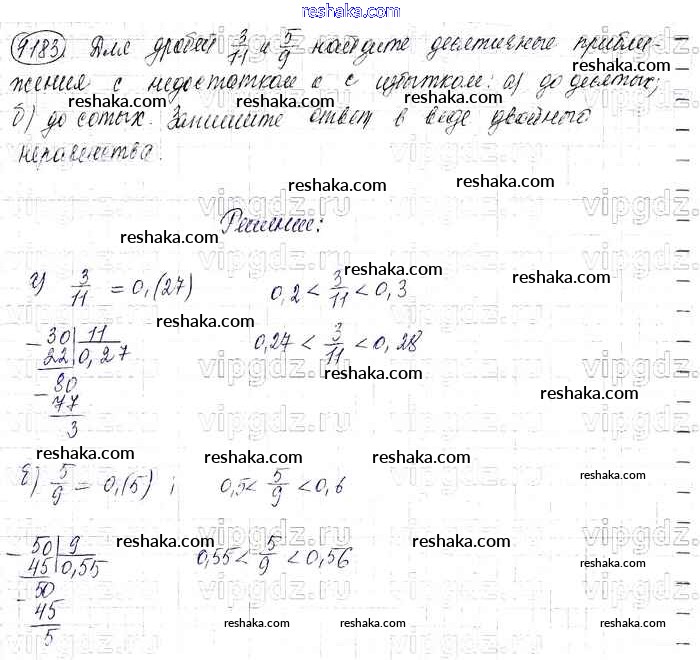 reshaka.com
1183 Для дробей 3/11 и 5/9 найдите десятичные прибли-
жения с недостатком и с избытком: а) до десятых;
reshaka.com reshaka.com reshaka.com
б) до сотых. Запишите ответ в виде двойного
неравенства.
reshaka.com reshaka.com
vipgdz.ru vipgdz.ru vipgdz.ru
Решение:
reshaka.com reshaka.com
reshaka.com reshaka.com
1) 3/11 = 0,(27) 0,2 < 3/11 < 0,3
reshaka.com reshaka.com
- 30 | 11 0,27 < 3/11 < 0,28
22 | 0,27
vipgdz.ru vipgdz.ru vipgdz.ru
- 80 reshaka.com
77 reshaka.com
3
vipgdz.ru vipgdz.ru vipgdz.ru
reshaka.com reshaka.com reshaka.com
reshaka.com
2) 5/9 = 0,(5) ; 0,5 < 5/9 < 0,6
vipgdz.ru vipgdz.ru vipgdz.ru
- 50 | 9 reshaka.com reshaka.com reshaka.com
45 | 0,55 0,55 < 5/9 < 0,56
- 50
45
5
vipgdz.ru vipgdz.ru vipgdz.ru
reshaka.com reshaka.com reshaka.com